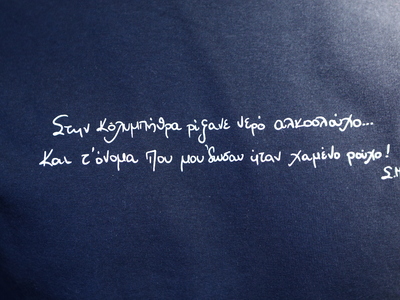 Στην κολυμπήθρα ρίξανε νερό αλκοολούχο...
Και τ' όνομα που μου δωσαν ήταν χαμένο ρούχο!
Σ.Μ